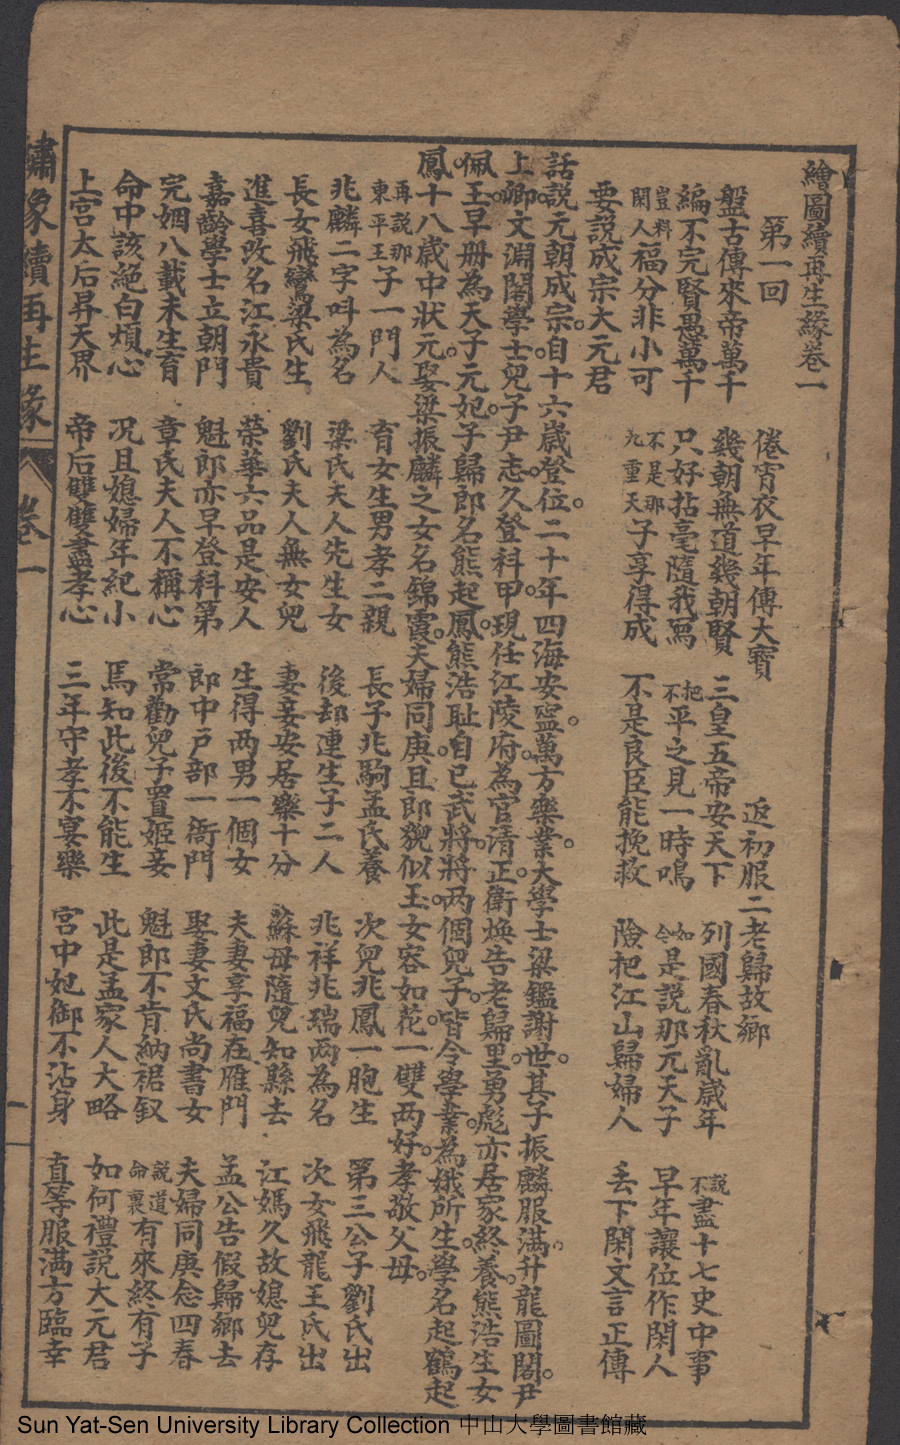 繪圖續再生緣卷一
第一回　倦宵衣早年傳大寶　返初服二老歸故鄉
盤古傳來帝萬千　幾朝無道幾朝賢　三皇五帝安天下　列國春秋亂歲年　說不盡十七史中事
編不完賢愚萬千　只好拈毫隨我寫　把不平之見一時鳴　如今是說那元天子　早年讓位作閑人
豈料閑人福分非小可　不是那九重天子享得成　不是良臣能挽救　險把江山歸婦人　丢下閑文言正傳
要說成宗大元君
話説元朝成宗。自十六歲登位。二十年四海安寧。萬方樂業。大學士梁鑑謝世。其子振麟服滿。升龍圖閣。尹
上卿。文淵閣學士兒子尹志。久登科甲。現任江陵府為官清正。衛煥告老歸里。勇彪亦居家終養。熊浩生女
佩玉。早册為天子元妃。子歸郎名熊起鳳。熊浩耻自已武將。將两個兒子。皆令學業。為娥所生。學名起鶴。起
鳳十八歲中狀元。娶梁振麟之女名錦霞。夫婦同庚。且郎貌似玉。女容如花。一雙两好。孝敬父母。
再說那東平王子一門人　育女生男孝二親　長子兆駒孟氏養　次兒兆鳳一胞生　第三公子劉氏出
兆麟二字呌為名　梁氏夫人先生女　後却連生子二人　兆祥兆瑞两為名　次女飛龍王氏出
長女飛鸞梁氏生　劉氏夫人無女兒　妻妾安居樂十分　蘇母隨兒知縣去　江媽久故媳兒存
進喜改名江永貴　榮華六品是安人　生得两男一個女　夫妻享福在雁門　孟公告假歸鄉去
嘉齡學士立朝門　魁郎亦早登科第　郎中戸部一衙門　娶妻文氏尚書女　夫婦同庚念四春
完姻八載未生育　章氏夫人不稱心　常勸兒子置姬妾　魁郎不肯納裙釵　說道命裏有來終有子
命中該絕白煩心　况且媳婦年紀小　焉知此後不能生　此是孟家人大略　如何禮說大元君
上宫太后昇天界　帝后雙雙盡孝心　三年守孝不宴樂　宫中妃御不沾身　直等服滿方臨幸
繡像續再生緣　卷一　一
Sun Yat-Sen University Library Collection 中山大學圖書館藏